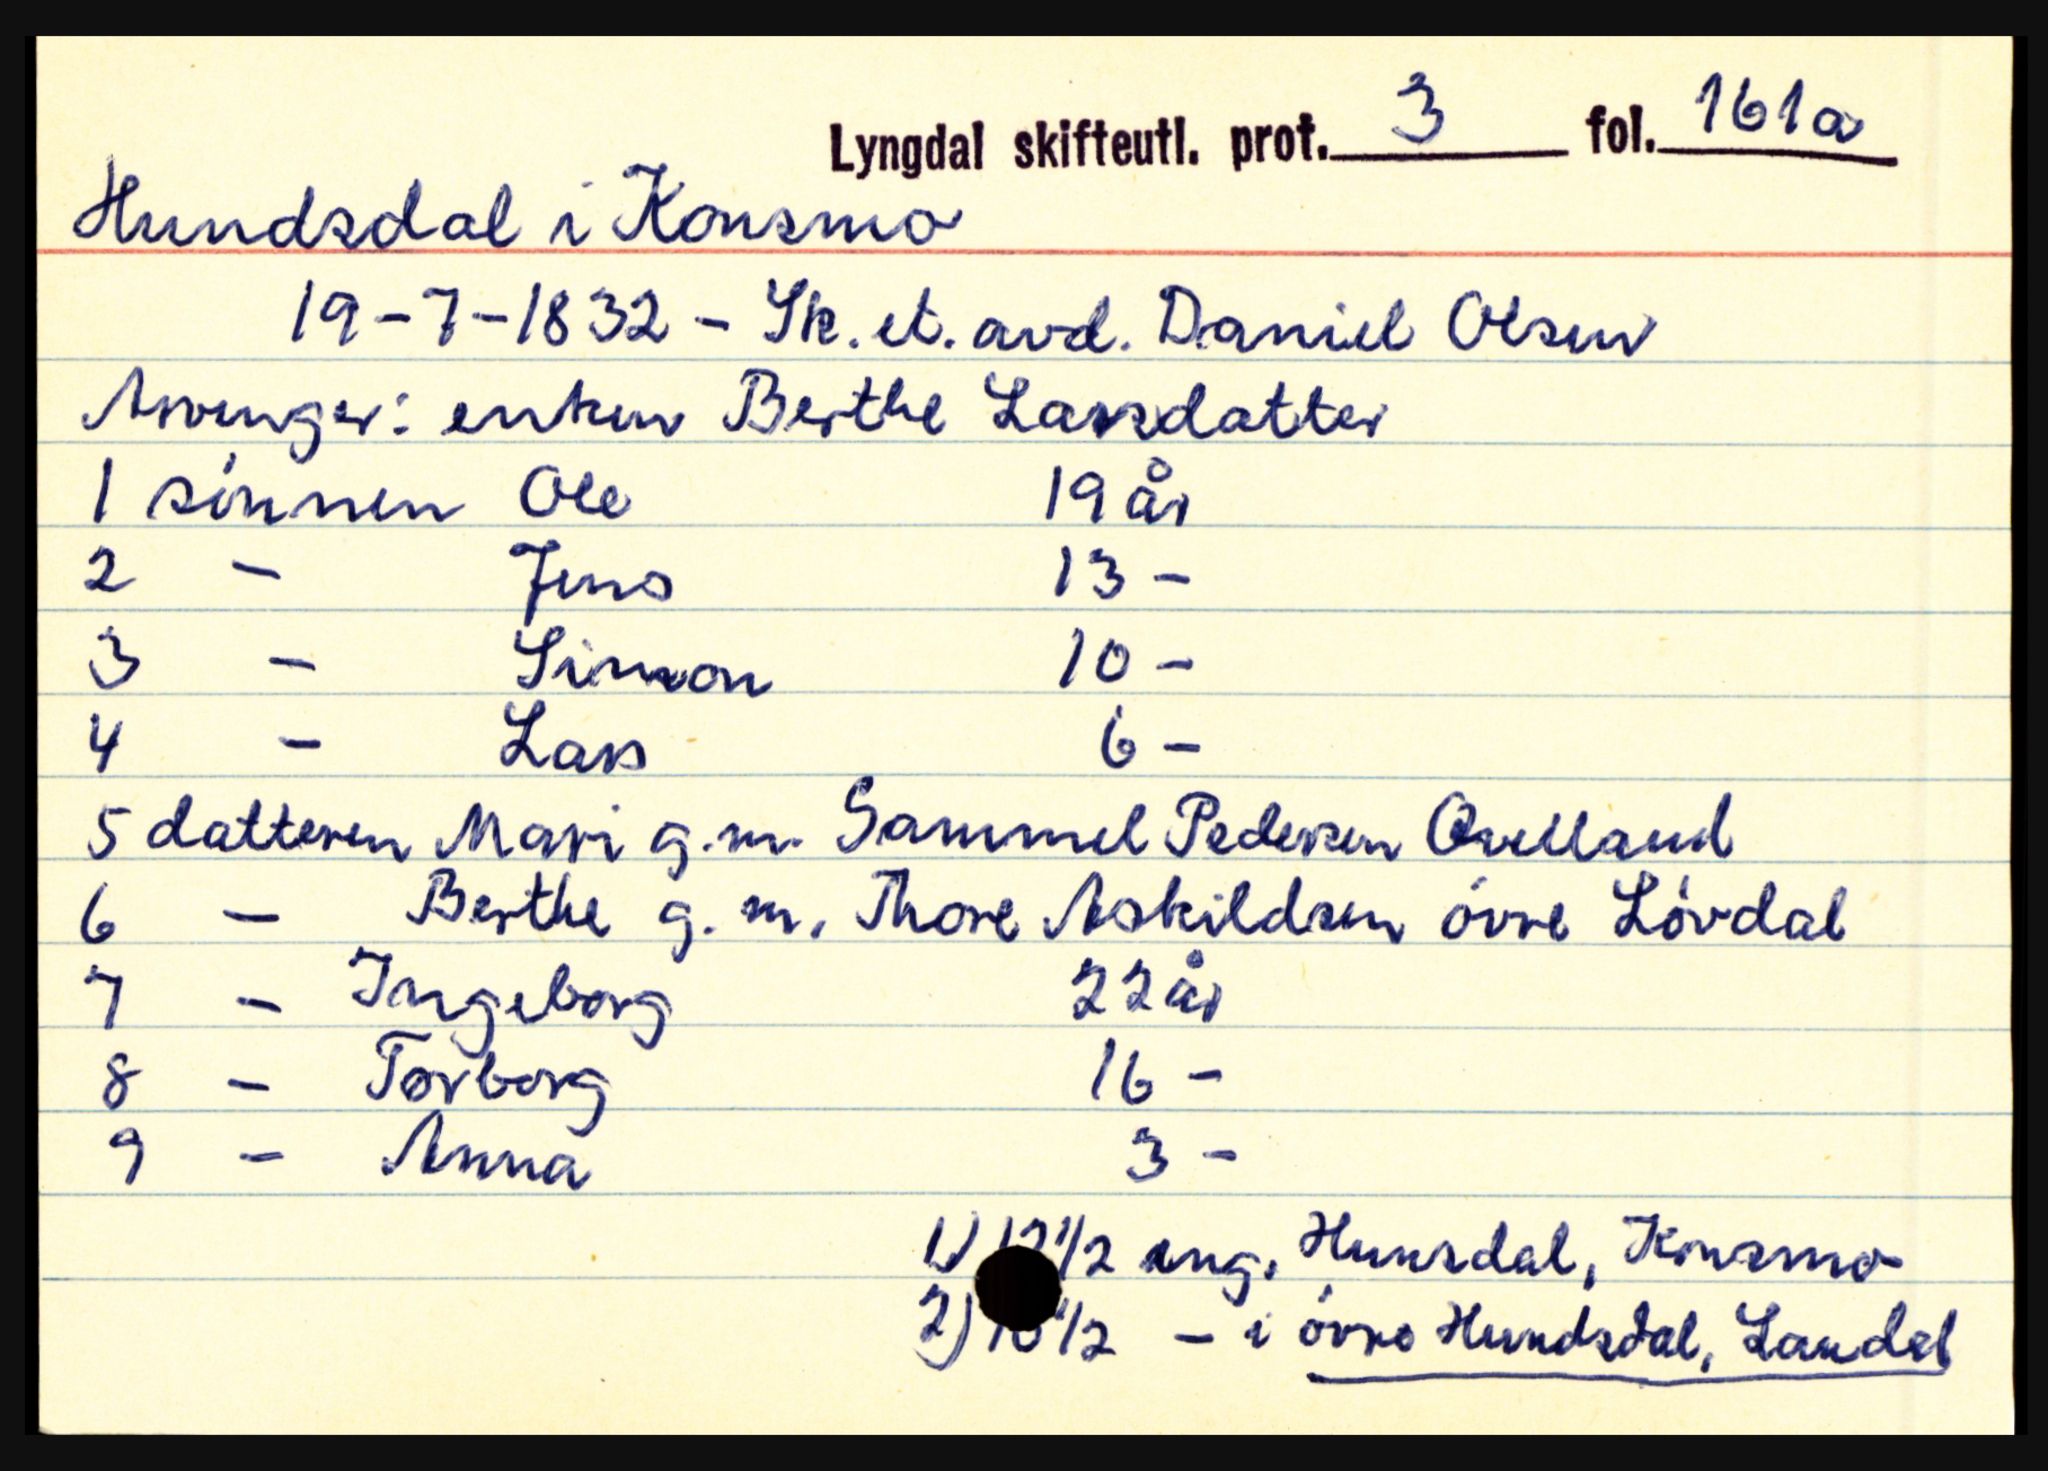 Lyngdal skifteutl. prot. 3 fol. 161a
Hundsdal i Konsmo
19-7-1832 - Sk. et. avd. Daniel Olsen
Arvinger: enken Berthe Larsdatter
1 sönnen Ole 19 år
2 - Jens 13 -
3 - Simon 10 -
4 - Lars 6 -
5 datteren Mari g.m. Sammel Pedersen Qvelland
6 - Berthe g.m. Thore Askildsen övre Lövdal
7 - Ingeborg 22 år
8 - Torborg 16 -
9 - Anna 3 -
1) 1/2 eng. Hunsdal, Konsmo
2) 1/2 - i övre Hundsdal, Landal